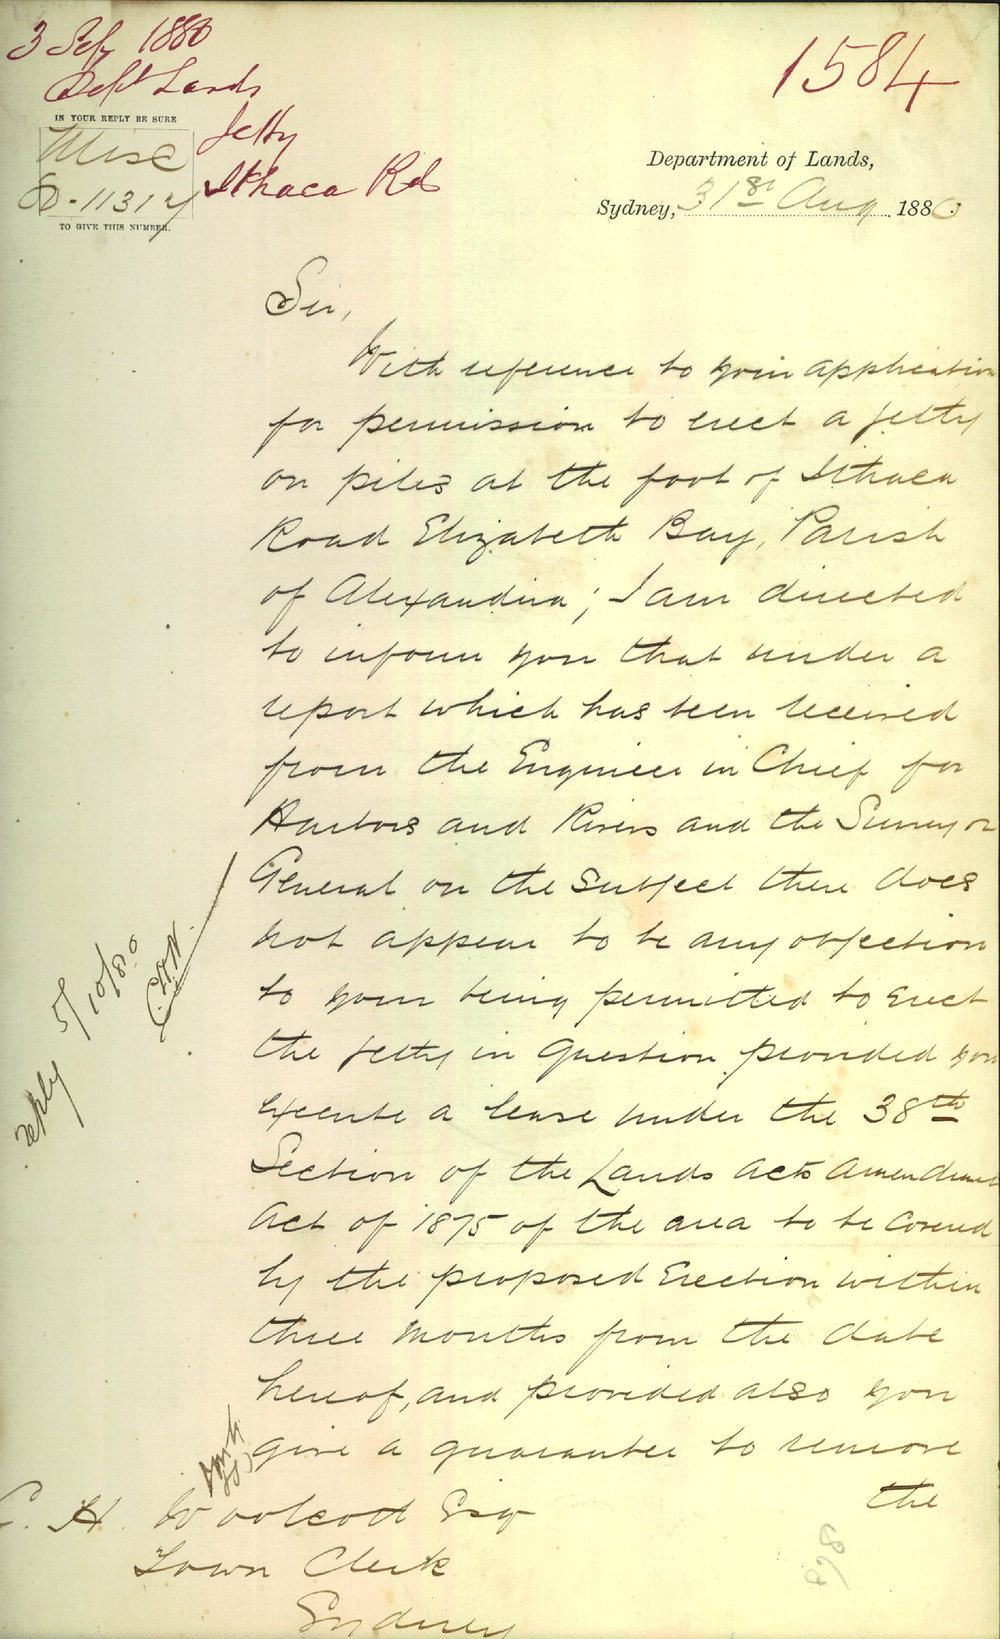 3 Sep 1880
Dept Lands
Jetty
Ithaca Rd
1584
IN YOUR REPLY BE SURE
Misc
TO GIVE THIS NUMBER.
Department of Lands,
Sydney, 31st Aug 1880.
Sir,
With reference to your application
for permission to erect a jetty
on piles at the foot of Ithaca
Road Elizabeth Bay, Parish
of Alexandria; I am directed
to inform you that under a
report which has been received
from the Engineer in Chief for
Harbors and Rivers and the Surveyor
General on the Subject there does
not appear to be any objection
to your being permitted to erect
the jetty in Question provided you
execute a lease under the 38th
Section of the Lands Acts Amendment
Act of 1875 of the area to be Covered
by the proposed Erection within
three Months from the date
hereof, and provided also you
give a guarantee to remove
the
reply 5/10/80
C.H.W.
C. H. Woolcott Esq
Town Clerk
Sydney